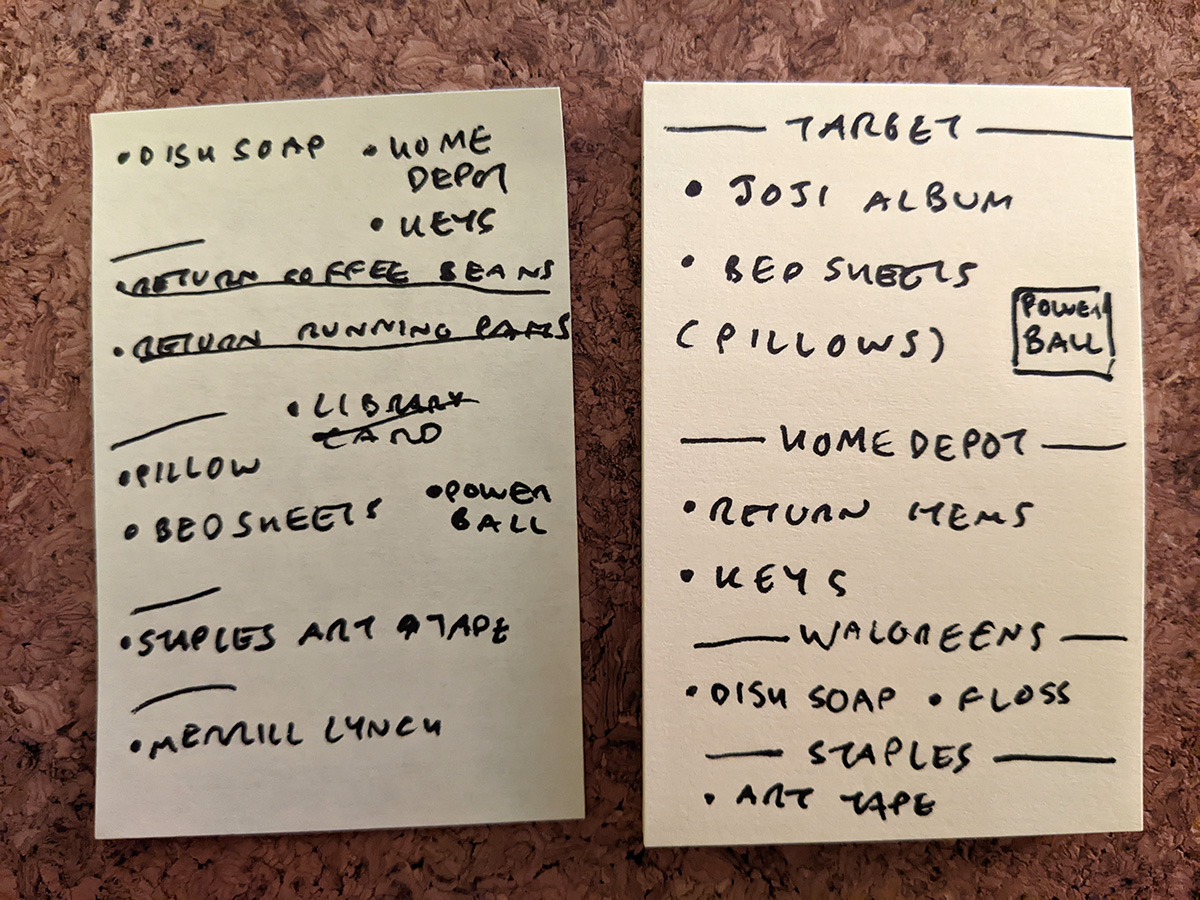 • DISH SOAP
• HOME
DEPOT
• KEYS
• RETURN COFFEE BEANS
• RETURN RUNNING PANTS
• LIBRARY
CARD
• PILLOW
• BED SHEETS
• POWER
BALL
• STAPLES ART TAPE
• MERRILL LYNCH
TARGET
• JOJI ALBUM
• BED SHEETS
(PILLOWS)
POWER
BALL
HOME DEPOT
• RETURN ITEMS
• KEYS
WALGREENS
• DISH SOAP • FLOSS
STAPLES
• ART TAPE